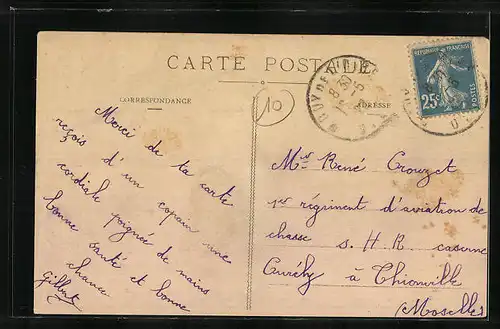 CARTE POSTALE
CORRESPONDANCE
ADRESSE
10
REPUBLIQUE FRANÇAISE
25c
POSTES
PUY DE DÔME
Merci de ta carte
reçois d'un copain une
cordiale poignée de mains
bonne santé et bonne
chance
Gilbert
Mr René Crouzet
1er régiment d'aviation de
chasse S.H.R caserne
à Thionville
(Moselle)